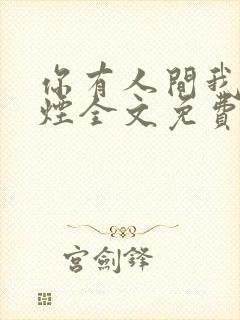 你有人間我
煙全文免費
宮劍鋒